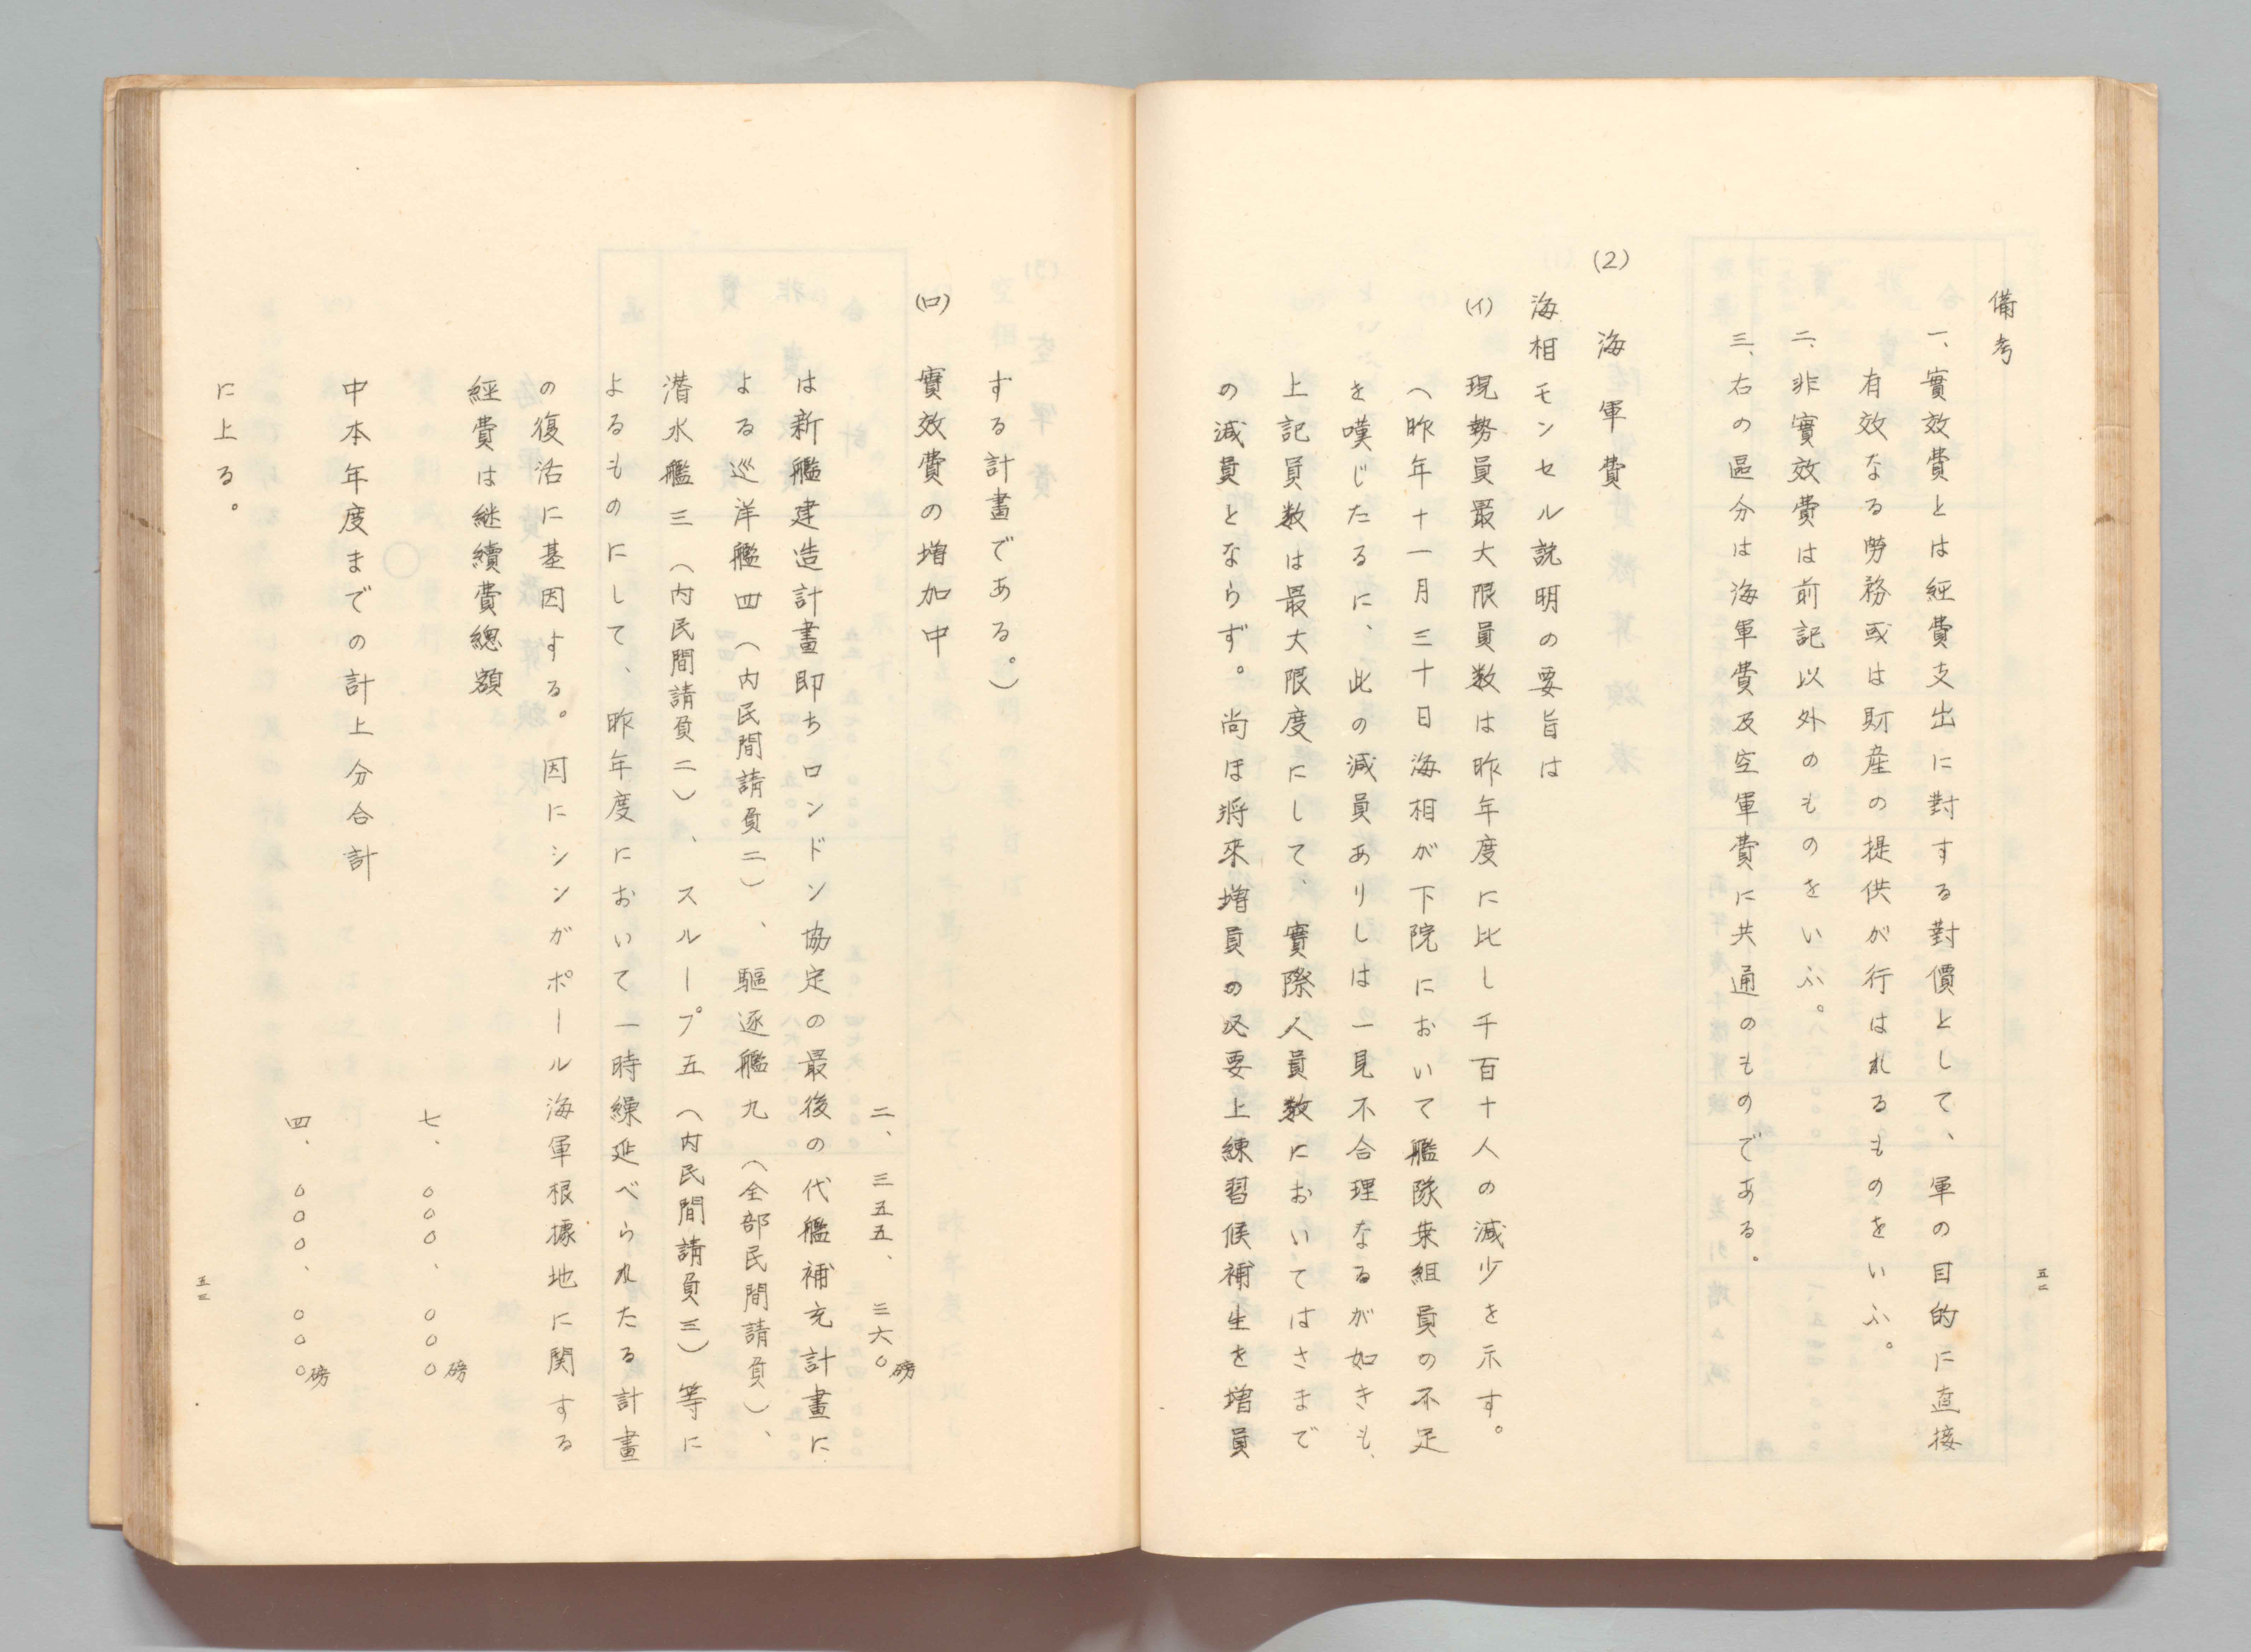 備考
一、實效費とは經費支出に對する對價として、軍の目的に直接
有效なる勞務或は財産の提供が行はれるものをいふ。
二、非實效費は前記以外のものをいふ。
三、右の區分は海軍費及空軍費に共通のものである。
(2) 海軍費
海相モンセル説明の要旨は
(イ) 現勢員最大限員数は昨年度に比し千百十人の減少を示す。
(昨年十一月三十日海相が下院において艦隊乗組員の不足
を嘆じたるに、此の減員ありしは一見不合理なるが如きも、
上記員数は最大限度にして、實際人員数においてはさまで
の減員とならず。尚ほ将來増員の必要上練習候補生を増員
五二
する計畫である。)
(ロ) 實效費の増加中 二、三五五、三六〇磅
は新艦建造計畫即ちロンドン協定の最後の代艦補充計畫に
よる巡洋艦四(内民間請負二)、驅逐艦九(全部民間請負)、
潜水艦三(内民間請負二)、スループ五(内民間請負三)等に
よるものにして、昨年度において一時繰延べられたる計畫
の復活に基因する。因にシンガポール海軍根據地に関する
經費は継續費總額 七、〇〇〇、〇〇〇磅
中本年度までの計上分合計 四、〇〇〇、〇〇〇磅
に上る。
五三